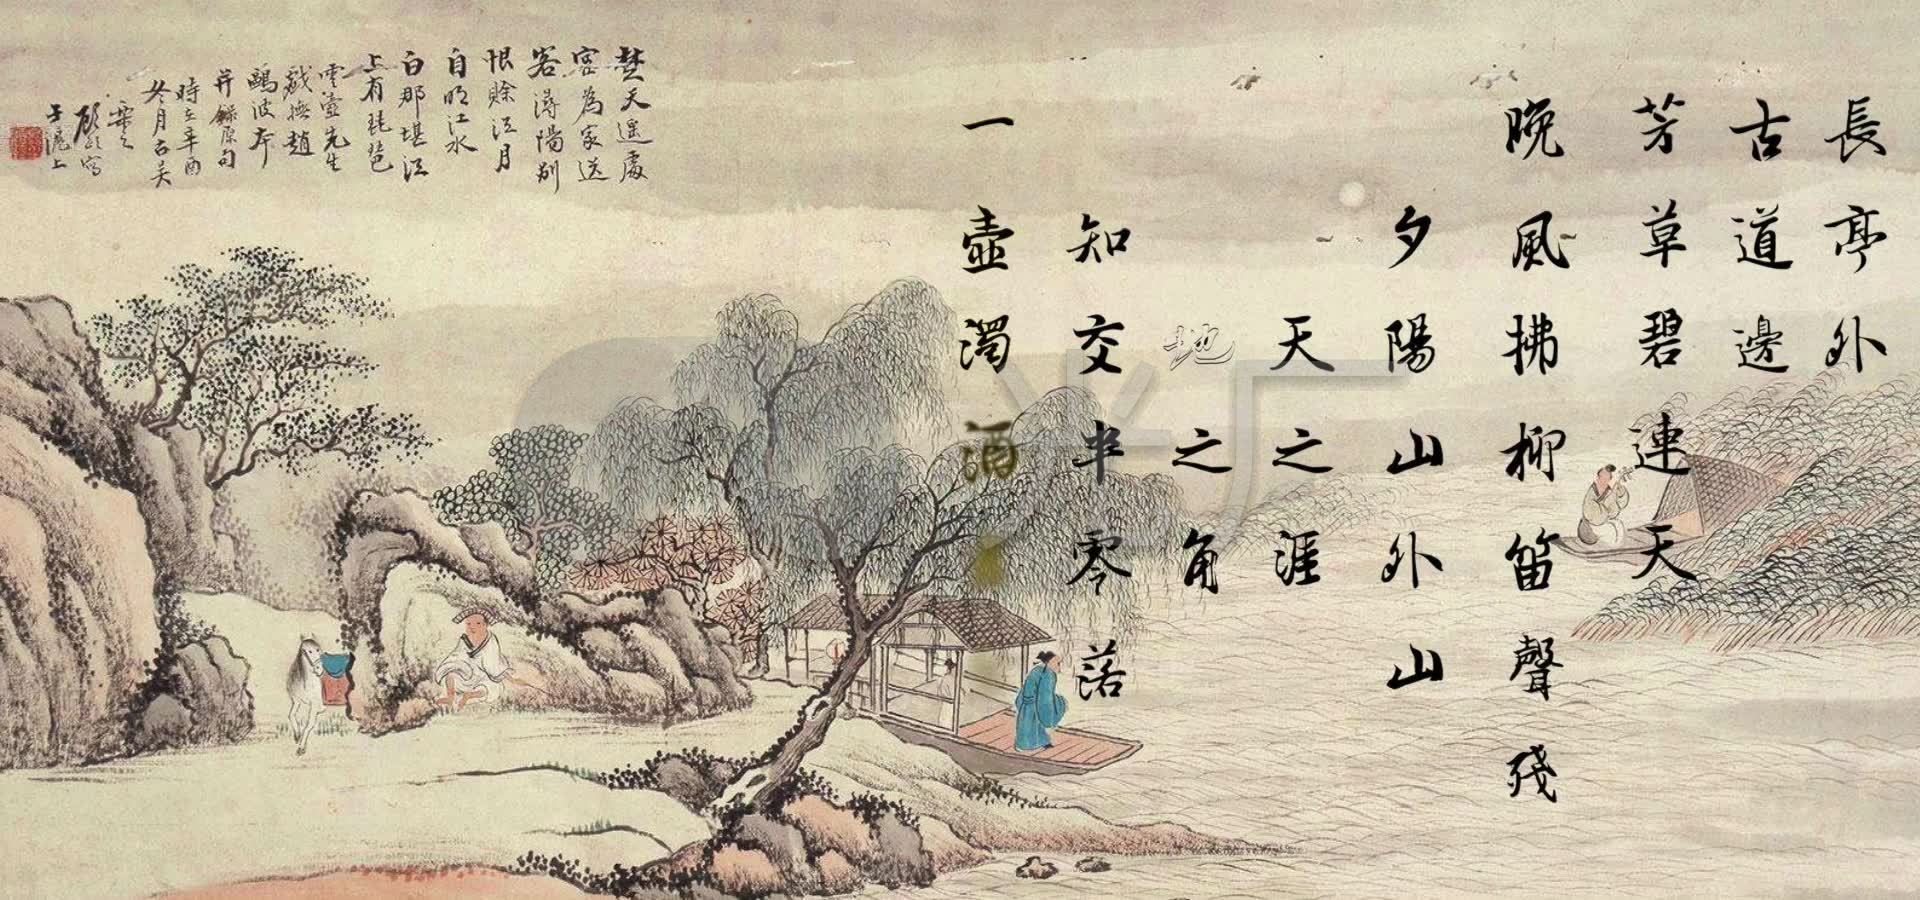 長亭外
古道邊
芳草碧連天
晚風拂柳笛聲殘
夕陽山外山
天之涯
地之角
知交半零落
一壺濁酒
楚天遥處
為家送
客潯陽別
恨賒江月
自明江水
白那堪江
上有琵琶
雲壺先生
戲撫趙
鷗波本
并錄原句
時在辛酉
冬月古吴
寫
于滬上
光厂